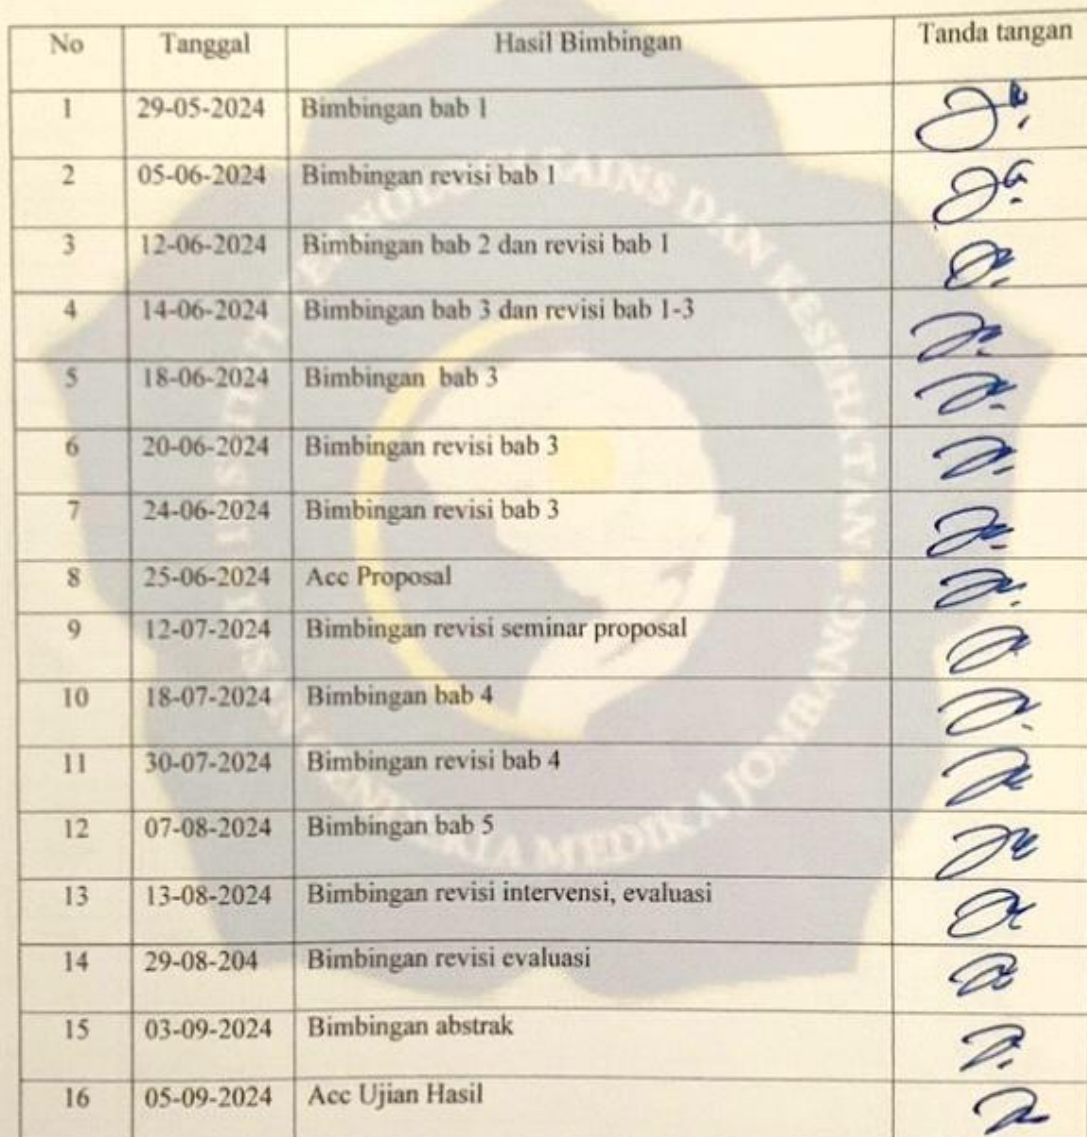 No Tanggal Hasil Bimbingan Tanda tangan
1 29-05-2024 Bimbingan bab 1
2 05-06-2024 Bimbingan revisi bab 1
3 12-06-2024 Bimbingan bab 2 dan revisi bab 1
4 14-06-2024 Bimbingan bab 3 dan revisi bab 1-3
5 18-06-2024 Bimbingan bab 3
6 20-06-2024 Bimbingan revisi bab 3
7 24-06-2024 Bimbingan revisi bab 3
8 25-06-2024 Acc Proposal
9 12-07-2024 Bimbingan revisi seminar proposal
10 18-07-2024 Bimbingan bab 4
11 30-07-2024 Bimbingan revisi bab 4
12 07-08-2024 Bimbingan bab 5
13 13-08-2024 Bimbingan revisi intervensi, evaluasi
14 29-08-204 Bimbingan revisi evaluasi
15 03-09-2024 Bimbingan abstrak
16 05-09-2024 Acc Ujian Hasil
SAINS DAN KESEHATAN
MEDIKA JOMBANG